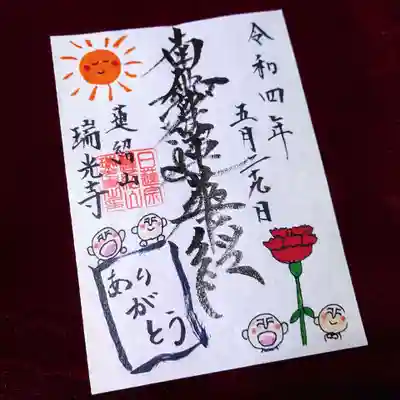 令和四年
五月二十九日
南無妙法蓮華経
蓮紹山
瑞光寺
ありがとう